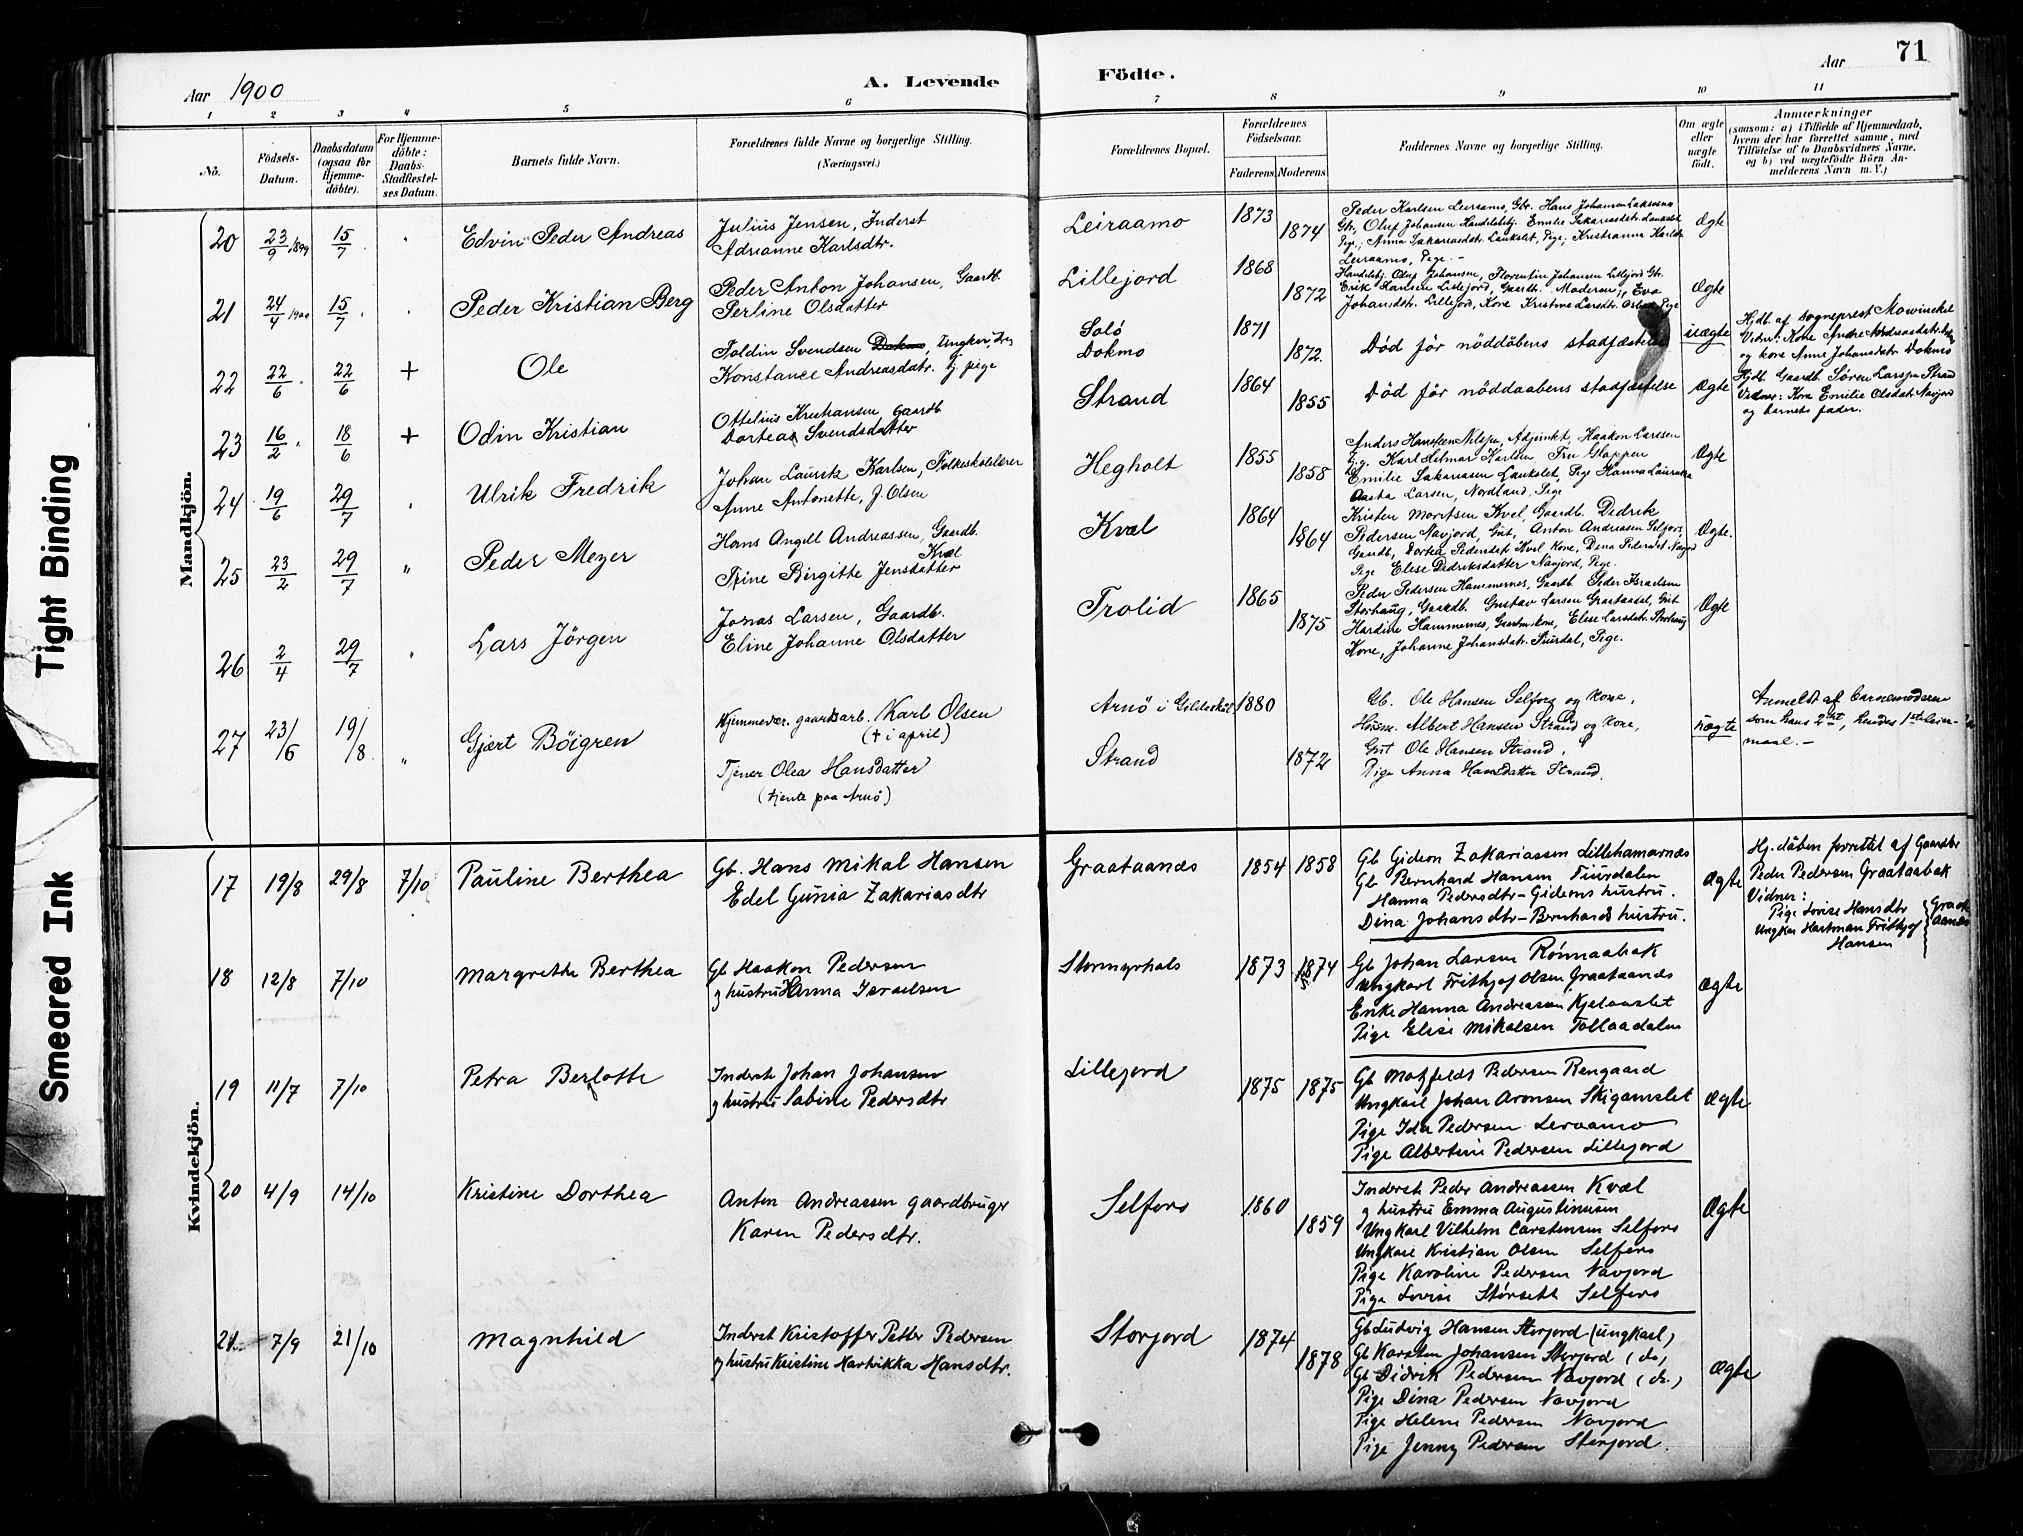 Aar 1900
A. Levende Födte.
Aar
71
1 2 3 4 5 6 7 8 9 10 11
No.
Födsels-Datum.
Daabsdatum (ogsaa for Hjemmedöbte).
For Hjemmedöbte: Daabs-Stadfæstelses Datum.
Barnets fulde Navn.
Forældrenes fulde Navne og borgerlige Stilling.
(Næringsvei.)
Forældrenes Bopæl.
Forældrenes Födselsaar.
Faderens. Moderens.
Faddernes Navne og borgerlige Stilling.
Om ægte eller uægte födt.
Anmærkninger
(saasom: a) i Tilfælde af Hjemmedaab, hvem der har forrettet samme, med Tilföielse af to Daabsvidners Navne, og b) ved uægtefödte Börn Anmelderens Navn m. V.)
Tight Binding
Smeared Ink
Mandkjön.
20 23/9 1899 15/7 Edvin Peder Andreas
Julius Jensen, Inderst
Adrianne Karlsdtr.
Leiraamo 1873 1874
Peder Karlsen Leiraamo, Gbr. Hans Johansen
Gbr, Oluf Johansen Handelsbtj. Emilie Sakariasdtr. Laukslet
Pige; Anna Sakariasdtr. Laukslet, Pige; Kristianna Karlsdtr
Leiraamo, Pige.
Ægte
21 24/4 1900 15/7 Peder Kristian Berg
Peder Anton Johansen, Gaardb.
Perline Olsdatter
Lillejord 1868 1872
Handelsbj. Oluf Johansen, Florentin Johansen Lillejord Gbr.
Erik Hansen Lillejord, Gaardb. Moderen; Eva
Johansdtr. Lillejord, Kone Kristine Larsdtr. Pige
Ægte
22 22/6 22/6 + Ole
Foldin Svendsen Dokmo, Ungkar,
Konstance Andreasdatr. Tj. pige
Solö
Dokmo
1871 1872
Död för nöddåbens stadfæstelse
uægte
Hjdb. af sogneprest Mowinckel
Vidner: Kone
og kone Anne Johansdatr. Dokmo
23 16/2 18/6 + Odin Kristian
Ottelius Kristiansen, Gaardb
Dorteas Svendsdatter
Strand 1864 1855
Död för nöddaabens stadfæstelse
Ægte
Hjdb. Gaardb. Søren Larsen Strand
Vidner: Kone Emilie Olsdatr. Navjord
og barnets fader.
24 19/6 29/7 Ulrik Fredrik
Johan Lauritz Karlsen, Folkeskolelærer
Anne Antonette, f. Olsen
Hegholt 1855 1858
Anders Hansteen Nilsen, Adjunkt, Haakon Larssen
Karl Hilmar Karlsen Fru Glappen
Emilie Sakariasen Laukslet, Pige Hanna
Aasta Larsen, Nordland, Pige
Ægte
25 23/2 29/7 " Peder Meyer
Hans Angell Andreassen, Gaardb.
Kvæl
Trine Birgitte Jensdatter
Kvæl 1864 1864
Kristen Moritsen Kvel, Gaardb. Dedrik
Pedersen Navjord, Gut, Anton Andreasen Selfors,
Gaardb, Dortea Pedersdtr Kvel Kone, Dina Pedersdtr Navjord
Pige Elise Didriksdatter Navjord, Pige.
Ægte.
26 2/4 29/7 " Lars Jörgen
Jonas Larsen, Gaardb.
Eline Johanne Olsdatter
Trolid 1865 1875
Peder Pedersen Hammernes, Gaardb. Peder Israelsen
Storhaug, Gaardb. Gustav Larsen Graataadal, Gut
Hardine Hammernes, Gaardm.kone, Elise Larsdatr. Storhaug
Kone, Johanne Johansdatr. Tiurdal, Pige.
Ægte
27 23/6 19/8 " Gjært Böigren
Hjemmevær. gaardsarb. Karl Olsen
(† i april)
Tjener Olea Hansdatter
(tjente paa Arnö)
Arnö i Gildeskål 1880
Strand 1872
Gb. Ole Hansen Selforg og kone,
Albert Hansen Strand og kone,
Gut Ole Hansen Strand,
Pige Anna Hansdatter Strand.
uægte
Anmeldt af barnemoderen
som hans 2det, hendes 1ste leier-
maal.–
Kvindekjön.
17 19/8 29/8 7/10 Pauline Berthea
Gb. Hans Mikal Hansen
Edel Gunia Zakariasdtr
Graataanæs 1854 1858
Gb Gideon Zakariassen Lillehamarnæs
Gb Bernhard Hansen Tiurdalen
Hanna Pedersdtr – Gideons hustru.
Dina Johansdtr – Bernhards hustru.
Ægte
Hj. dåben forrettet af Gaardbr
Peder Pedersen Graataabak
Vidner:
Pige Lovise Hansdtr
Ungkar Hartman Frithjof
Hansen
Graataanæs
18 12/8 7/10 Margrethe Berthea
Gb Haakon Pedersen
og hustru Hanna Israelsen
Stormyrhals 1873 1874
Gb Johan Larsen Rönnaabak
Ungkarl Frithjof Olsen Graataanæs
Enke Hanna Andreassen Kjelaaslet
Pige Elise Mikalsen Tollaadalen
Ægte
19 11/7 7/10 Petra Berlotte
Inderst Johan Johansen
og hustru Sabine Pedersdtr
Lillejord 1875 1875
Gb Motzfeldt Pedersen Rengaard
Ungkarl Johan Aronsen Skigamslet
Pige Ida Pedersen Leraamo
Pige Albertine Pedersen Lillejord
Ægte
20 4/9 14/10 Kristine Dorthea
Anton Andreassen gaardbruger
Karen Pedersdtr.
Selfors 1860 1859
Inderst Peder Andreassen Kvæl
og hustru Emma Augustinusen
Ungkarl Vilhelm Carstensen Selfors
Ungkarl Kristian Olsen Selfors
Pige Karoline Pedersen Navjord
Pige Lovise Störsett Selfors
Ægte
21 7/9 21/10 Magnhild
Inderst Kristoffer Petter Pedersen
og hustru Kristine Hartvikka Hansdtr.
Storjord 1874 1878
Gb Ludvig Hansen Storjord (ungkarl)
Gb Karsten Johansen Storjord (do)
Gb Didrik Pedersen Navjord (do.)
Pige Dina Pedersen Navjord
Pige Helene Pedersen Navjord
Pige Jenny Pedersen Storjord.
Ægte